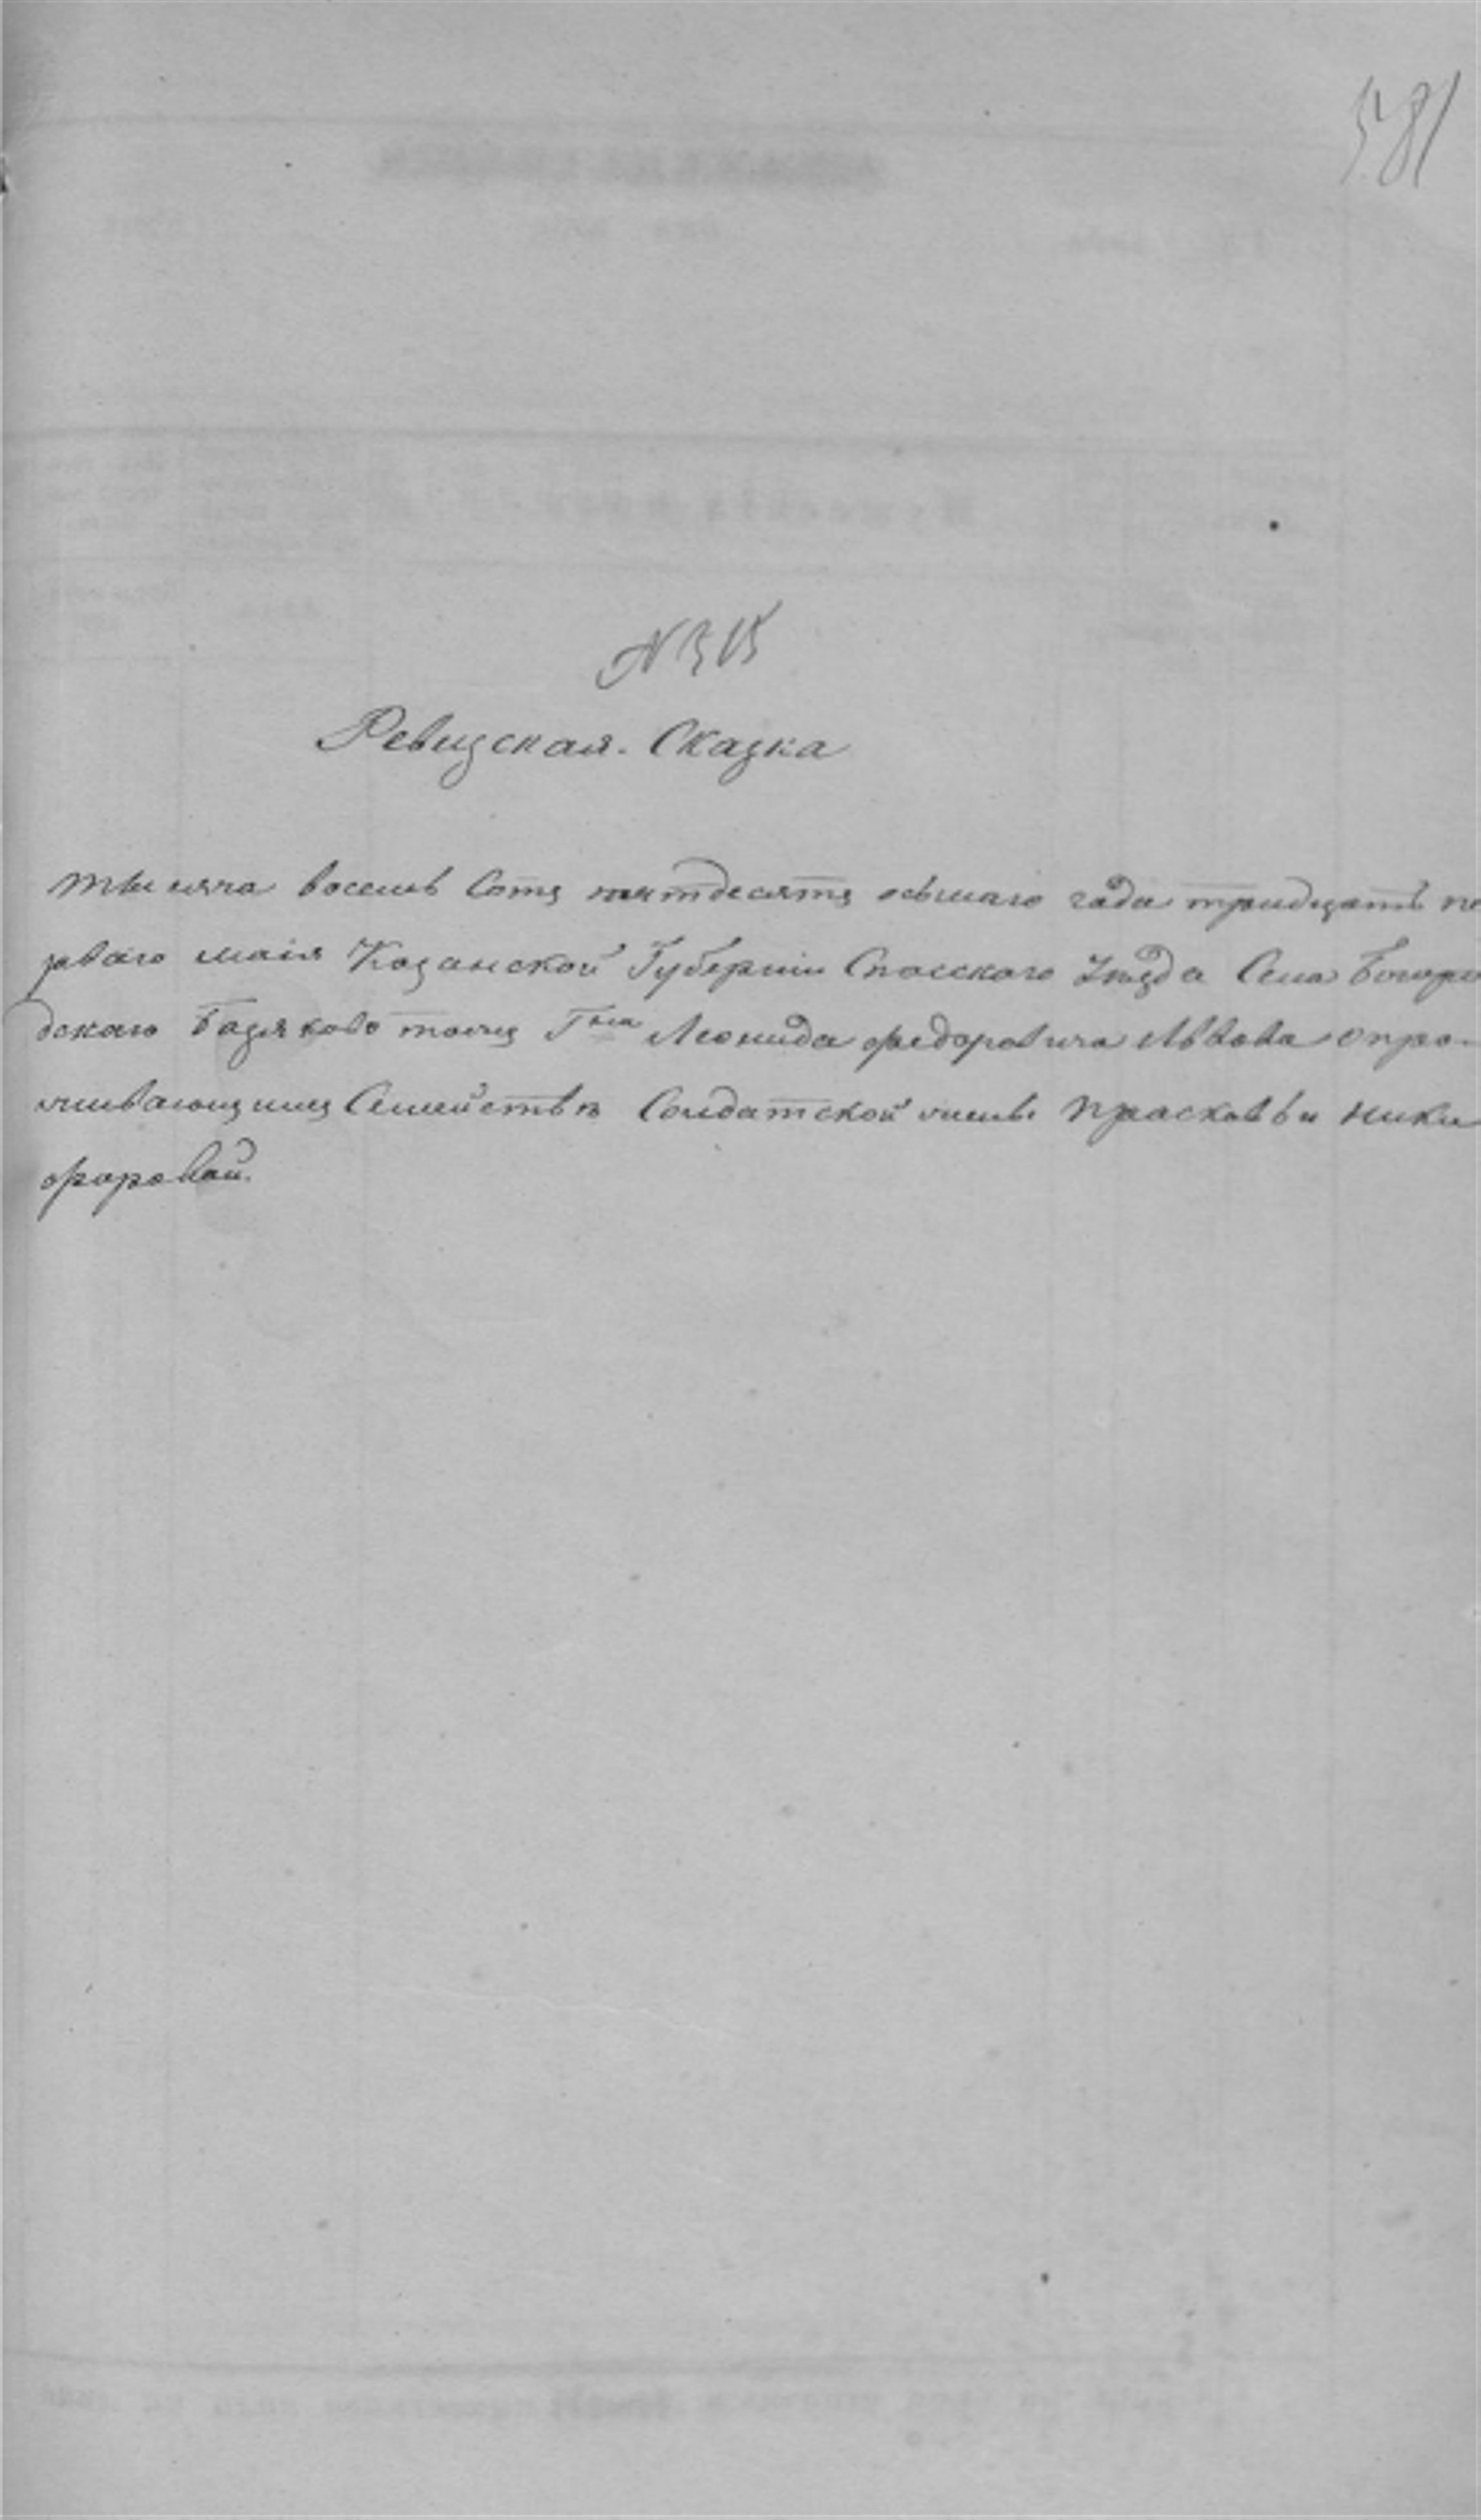 581
N 315
Ревизская. Сказка
тысяча восемь Сотъ пятдесятъ осьмаго года тридцать пе
рваго маія Казанской Губерніи Спасскаго Уезда Села Богоро
дскаго Базяково тожъ Гна Леонида федоровича Львова о про-
живающимъ Семействе Солдатской жены Прасковьи Ники
форовой.